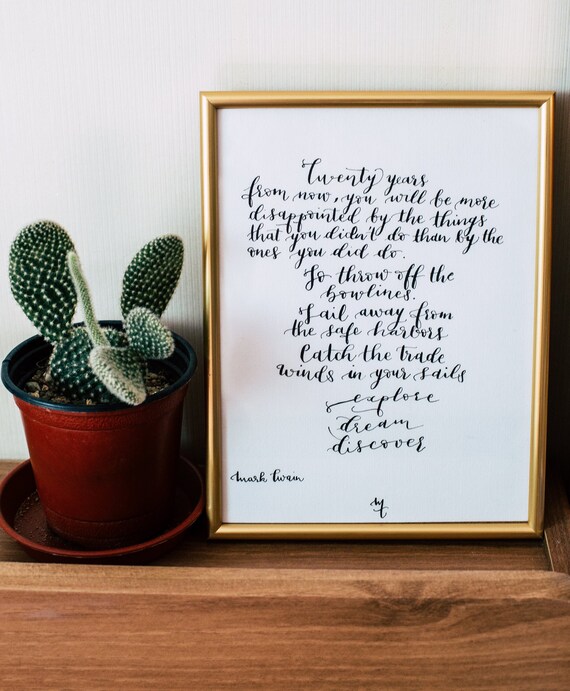 Twenty years
from now, you will be more
disappointed by the things
that you didn't do than by the
ones you did do.
So throw off the
bowlines.
Sail away from
the safe harbors
Catch the trade
winds in your sails
explore
dream
discover
Mark Twain